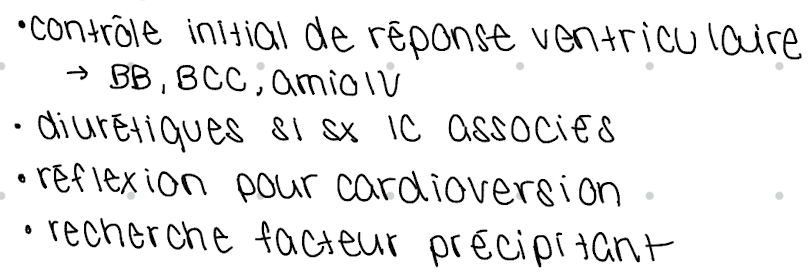 • contrôle initial de réponse ventriculaire
→ BB, BCC, amio IV
• diurétiques si sx IC associés
• réflexion pour cardioversion
• recherche facteur précipitant